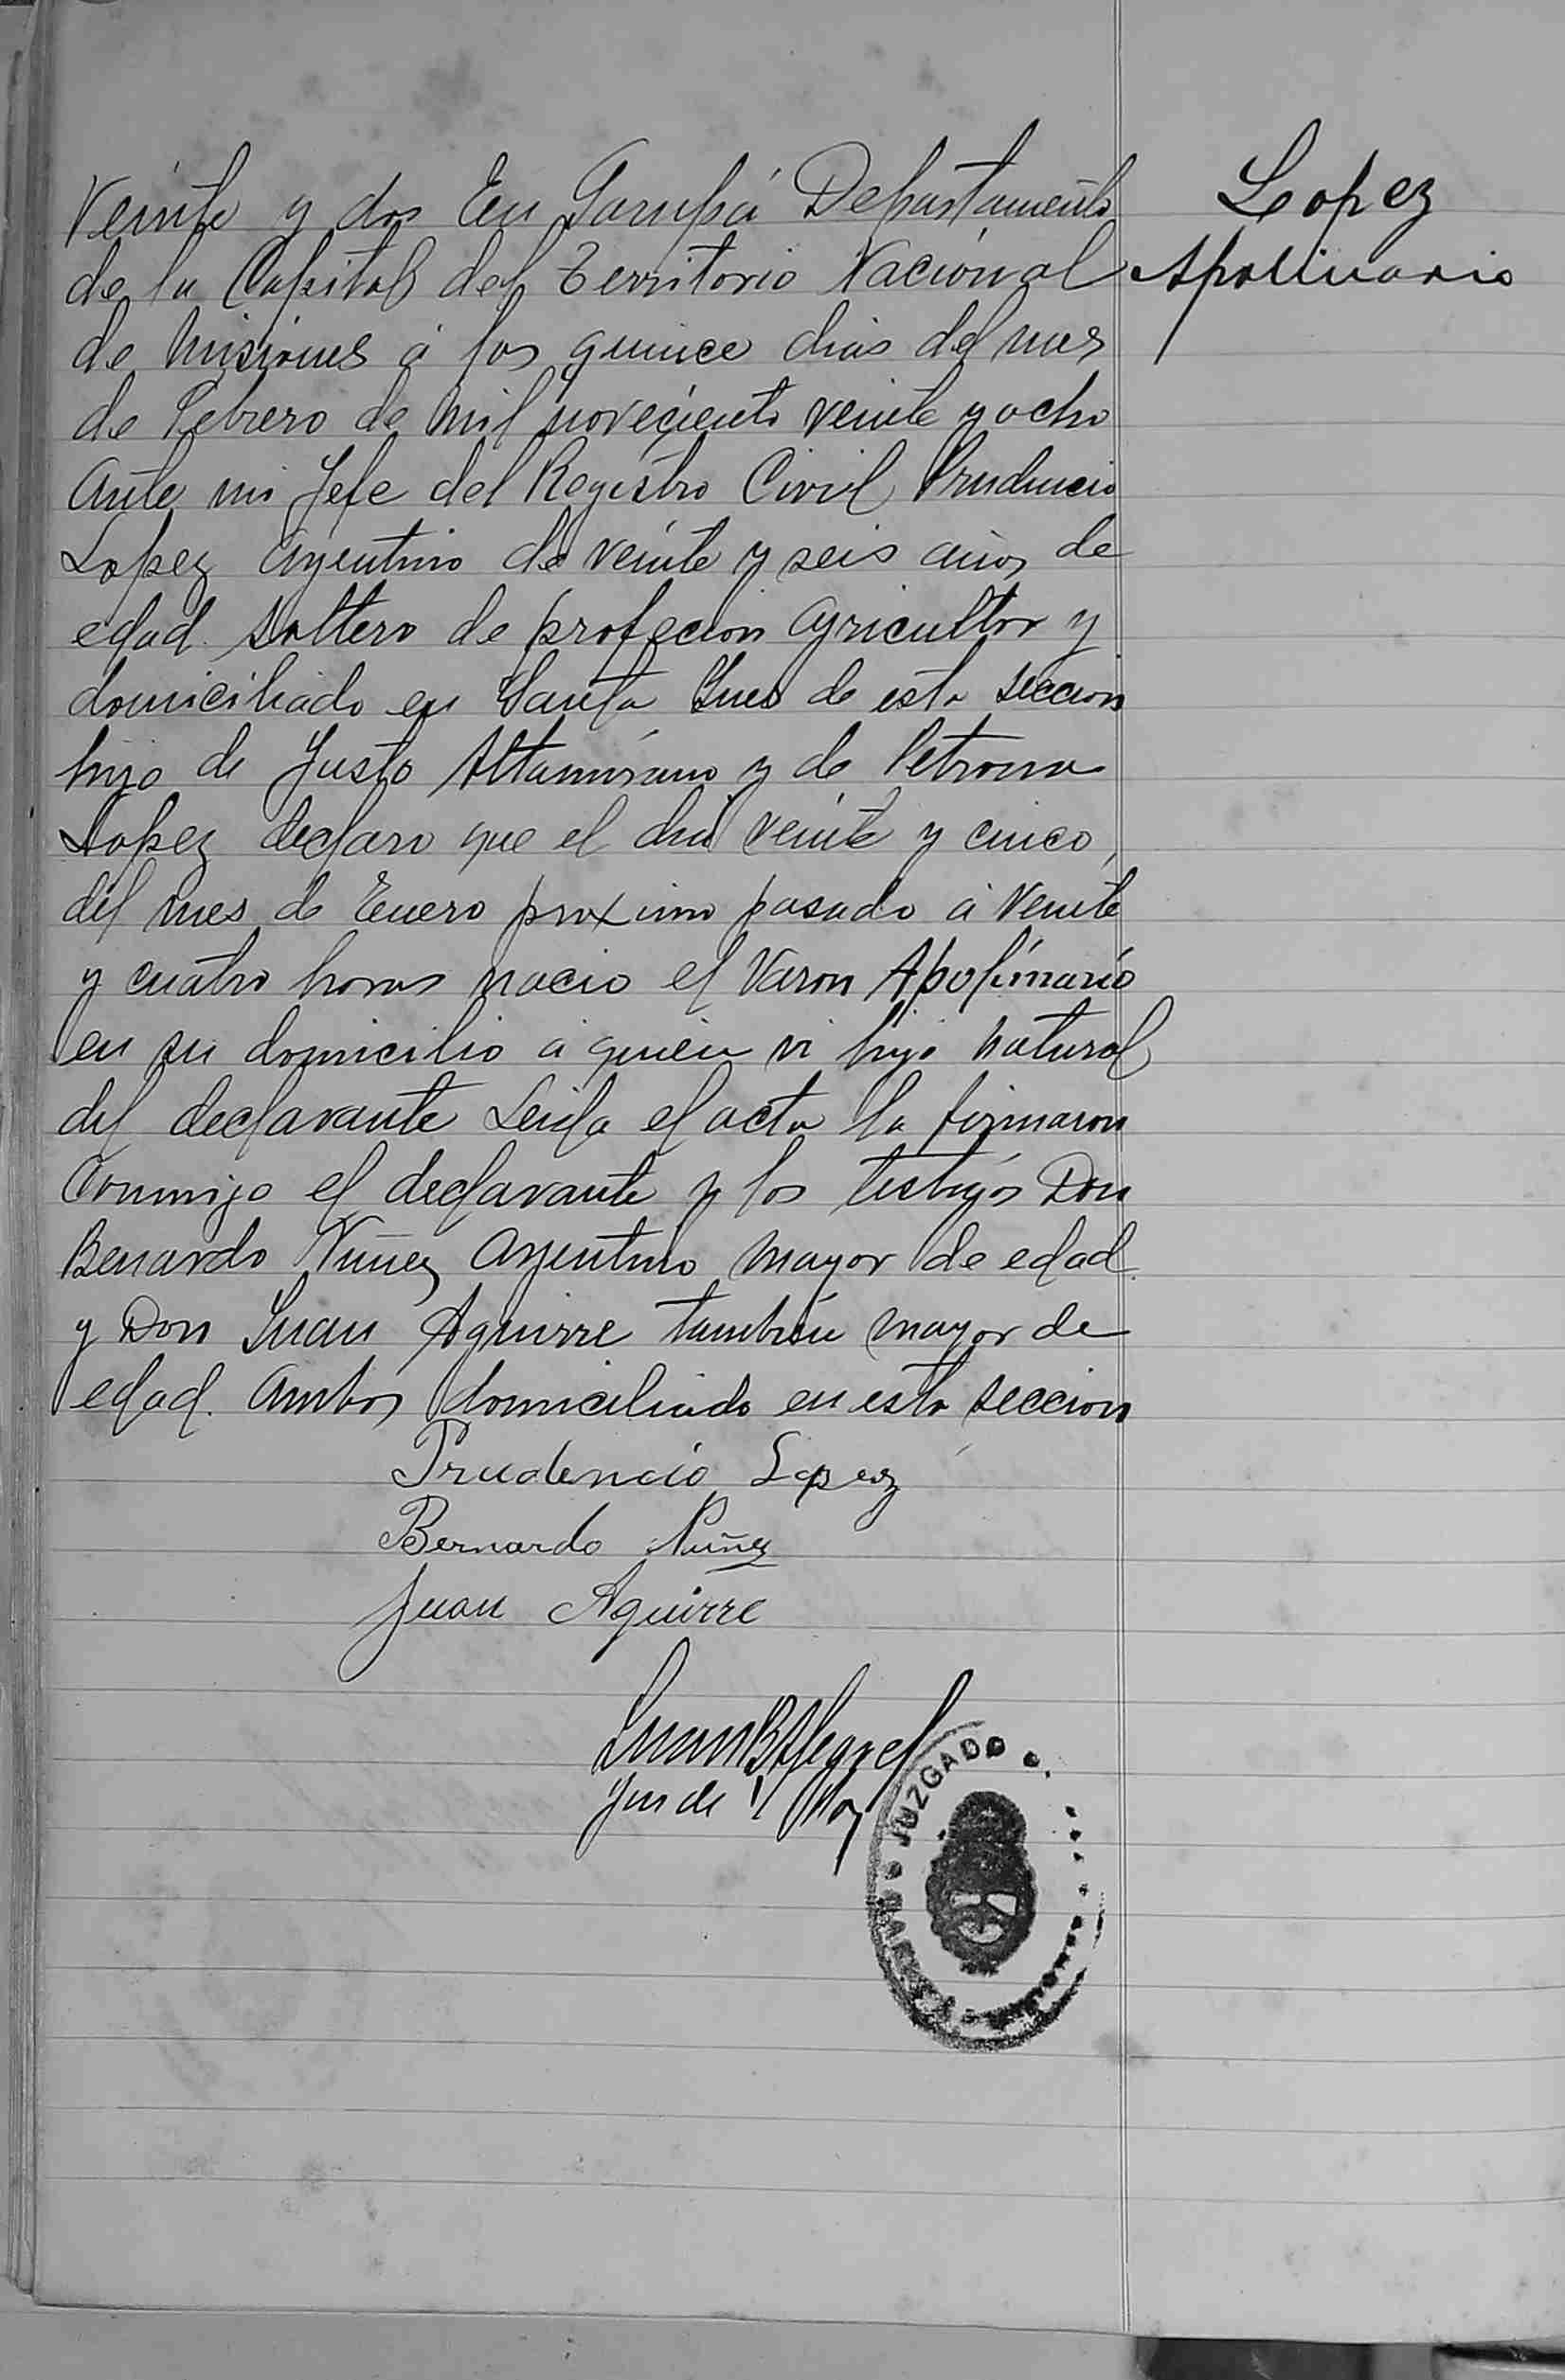 Veinte y dos En Garupá Departamento
de la Capital del Territorio Nacional
de Misiones á los quince dias del mes
de Febrero de mil noveciento veinte y ocho
Ante mi Jefe del Registro Civil Prudencio
Lopez Argentino de veinte y seis años de
edad. Soltero de profecion agricultor y
domiciliado en Santa Ines de esta seccion
hijo de Justo Altamirano y de Petrona
Lopez declaro que el dia veinte y cinco
del mes de Enero proximo pasado á veinte
y cuatro horas nacio el Varon Apolinario
en su domicilio á quien vi hijo natural
del declarante Leida el acta la firmaron
Conmigo el declarante y los testigos Don
Benardo Nuñez Argentino Mayor de edad.
y Don Juan Aguirre tambien mayor de
edad. Ambos domiciliado en esta seccion
Prudencio Lopez
Bernardo Nuñez
Juan Aguirre
Juan B Alegre
Jues de Paz
JUZGADO
Lopez
Apolinario